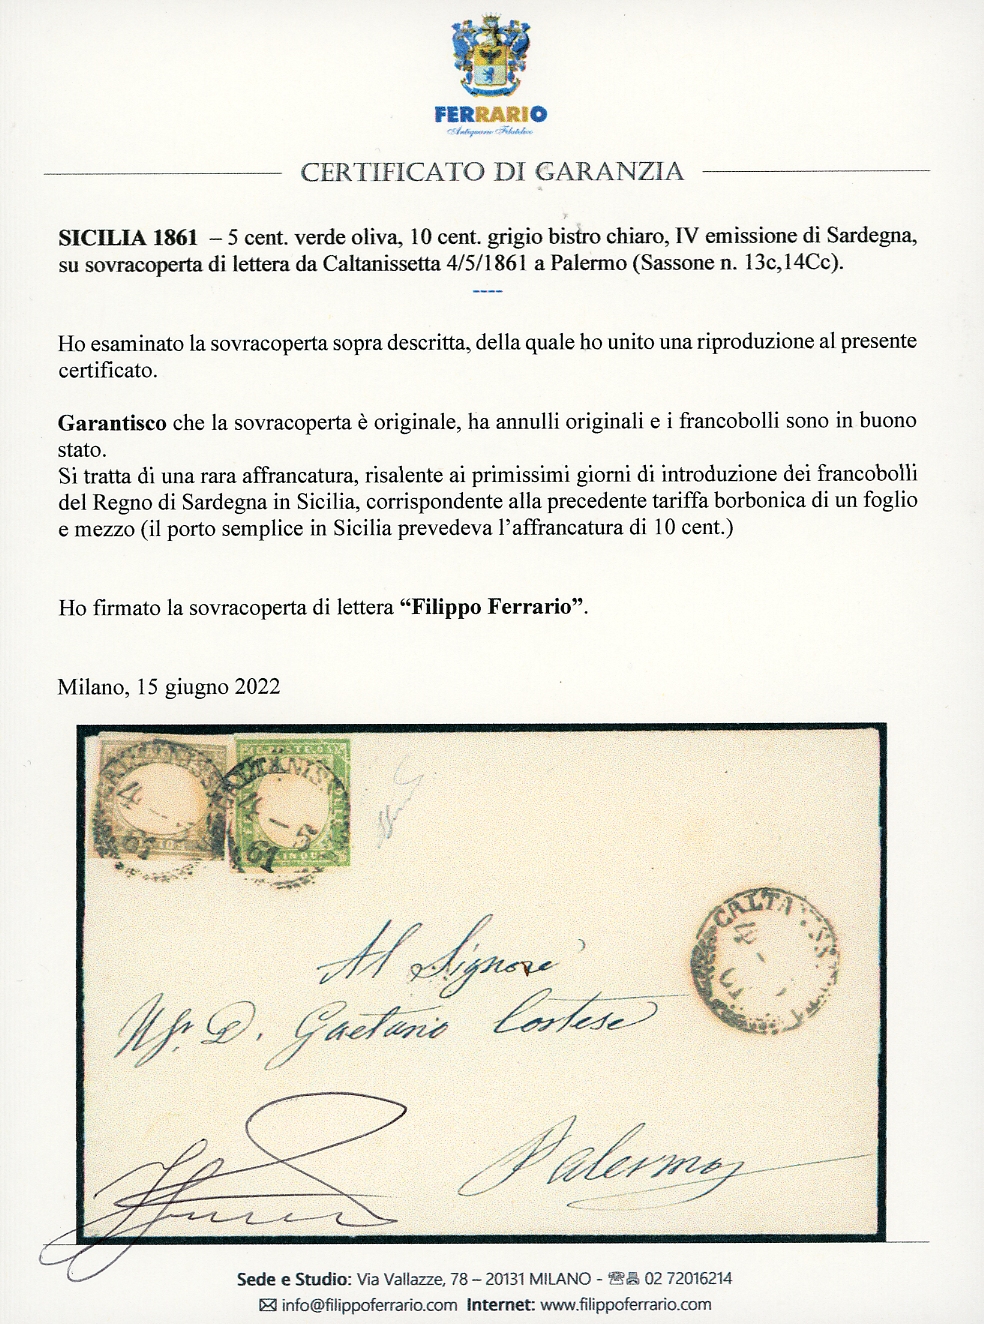 FERRARIO
Antiquario Filatelico
CERTIFICATO DI GARANZIA
SICILIA 1861 – 5 cent. verde oliva, 10 cent. grigio bistro chiaro, IV emissione di Sardegna,
su sovracoperta di lettera da Caltanissetta 4/5/1861 a Palermo (Sassone n. 13c,14Cc).
----
Ho esaminato la sovracoperta sopra descritta, della quale ho unito una riproduzione al presente
certificato.
Garantisco che la sovracoperta è originale, ha annulli originali e i francobolli sono in buono
stato.
Si tratta di una rara affrancatura, risalente ai primissimi giorni di introduzione dei francobolli
del Regno di Sardegna in Sicilia, corrispondente alla precedente tariffa borbonica di un foglio
e mezzo (il porto semplice in Sicilia prevedeva l’affrancatura di 10 cent.)
Ho firmato la sovracoperta di lettera “Filippo Ferrario”.
Milano, 15 giugno 2022
CALTANIS
4 - 5
61
CALTA
Al Signore
D. Gaetano Cortese
Palermo
Sede e Studio: Via Vallazze, 78 – 20131 MILANO - 02 72016214
info@filippoferrario.com Internet: www.filippoferrario.com